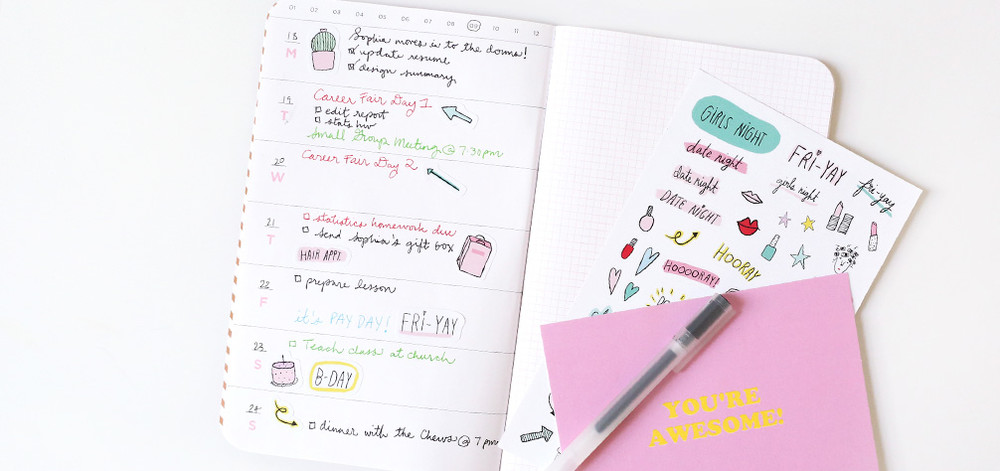 01 02 03 04 05 06 07 08 09 10 11 12
18
M
Sophia moves in to the dorms!
update resume
design summary
19
T
Career Fair Day 1
edit report
stats hw
Small Group Meeting @ 7:30pm
20
W
Career Fair Day 2
21
T
statistics homework due
send sophia's gift box
HAIR APPT.
22
F
prepare lesson
it's PAY DAY! FRI-YAY
23
S
Teach class at church
B-DAY
24
S
dinner with the Chews @ 7pm
GIRLS NIGHT
date night
FRI-YAY
date night
girls night
fri-yay
DATE NIGHT
HOORAY
HOOOORAY!
YOU'RE
AWESOME!